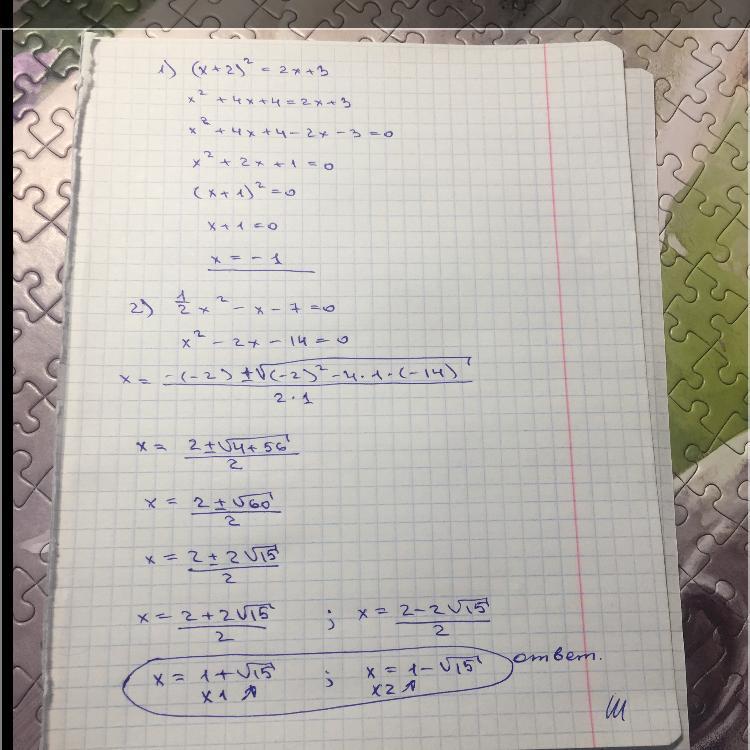 1) (x+2)² = 2x+3
x² + 4x+4 = 2x+3
x² + 4x+4 - 2x - 3 = 0
x² + 2x + 1 = 0
(x+1)² = 0
x+1 = 0
x = -1
2) 1/2 x² - x - 7 = 0
x² - 2x - 14 = 0
x = (-(-2) ± √((-2)² - 4·1·(-14))) / (2·1)
x = (2 ± √(4+56)) / 2
x = (2 ± √60) / 2
x = (2 ± 2√15) / 2
x = (2+2√15) / 2 ; x = (2-2√15) / 2
x = 1+√15 ; x = 1-√15 ответ.
x1 ↑ x2 ↑